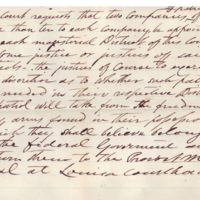 Court requests that two Companies, of
than ten to each company be appoin
each magisterial District of this Co
justice or justices of sa
the justices of Courts to exer
discretion as to whether such
needed in their respective Distr
patrol will take from the freedm
arms found in their possess
which they shall believe belong
the federal Government a
turn them to the Provost M
al at Louisa Courthou